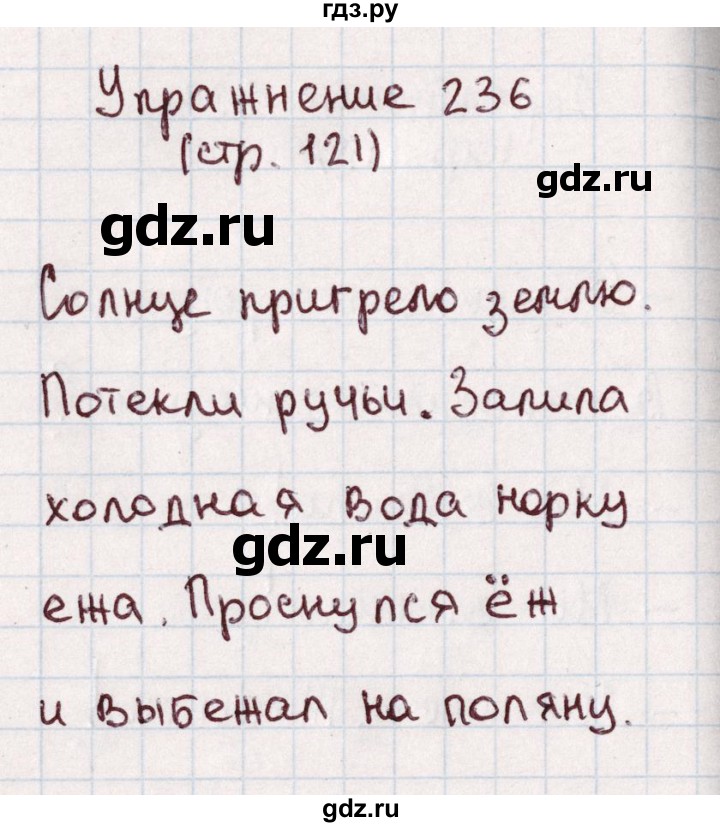 гдз.ру
Упражнение 236
(стр. 121)
gdz.ru
gdz.ru
Солнце пригрело землю.
Потекли ручьи. Залила
холодная вода норку
gdz.ru
ежа. Проснулся ёж
и выбежал на поляну.
gdz.ru